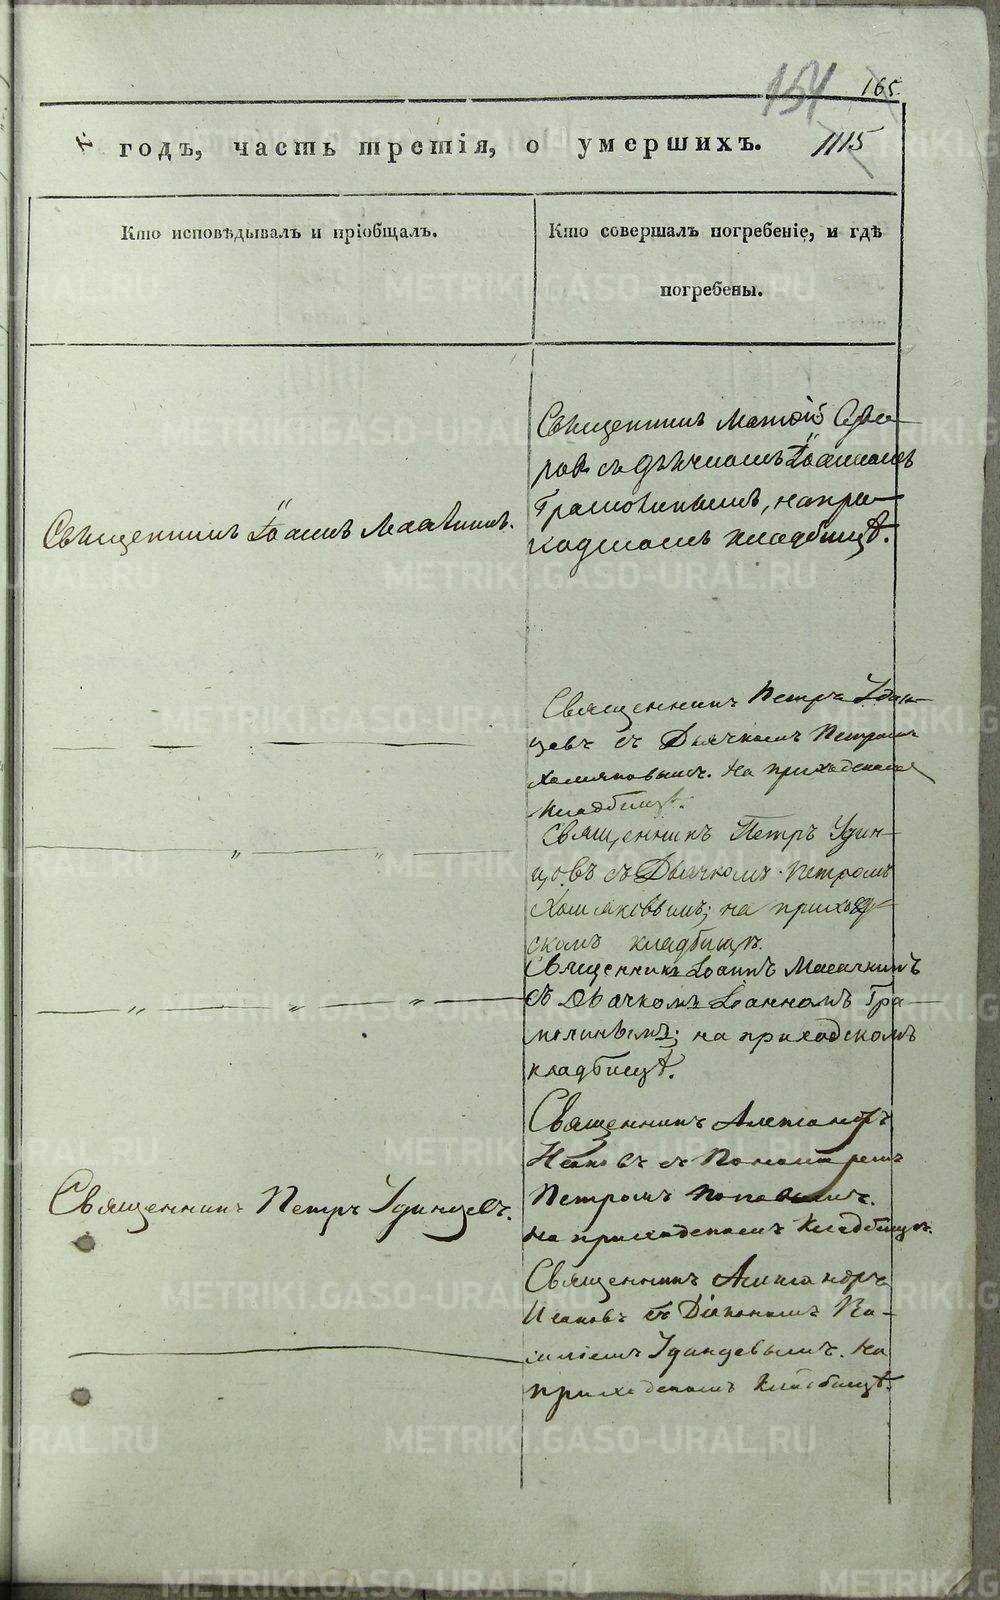 154 165.
годъ, часть третія, о умершихъ. 1115
Кто исповѣдывалъ и пріобщалъ.
Кто совершалъ погребеніе, и гдѣ
погребены.
Священникъ Іоаннъ
Священникъ
съ дьячкомъ Іоанномъ
на при-
ходскомъ кладбищѣ.
Священникъ Петръ Удин-
цевъ съ Дьячкомъ Петромъ
Хомяковымъ. На приходскомъ
кладбищѣ.
Священникъ Петръ Удин-
цовъ съ Дьячкомъ Петромъ
Хомяковымъ; на приход-
скомъ кладбищѣ.
Священникъ Іоаннъ
съ Дьячкомъ Іоанномъ Гра-
на приходскомъ
кладбищѣ.
Священникъ Петръ Удинцевъ.
Священникъ Александръ
съ Пономаремъ
Петромъ Поповымъ.
на приходскомъ кладбищѣ.
Священникъ Александръ
съ Діакономъ Ва-
силіемъ Удинцевымъ. На
приходскомъ кладбищѣ.
METRIKI.GASO-URAL.RU